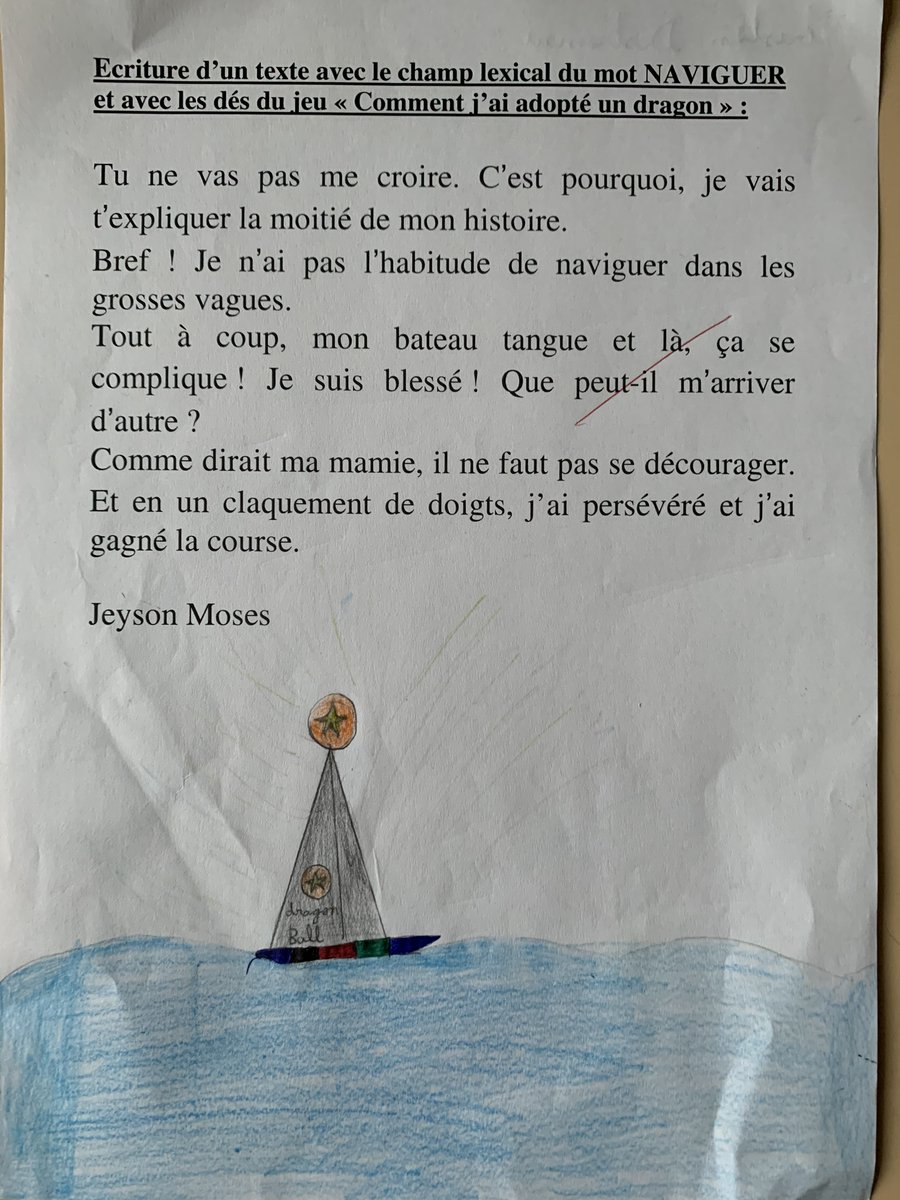 Ecriture d’un texte avec le champ lexical du mot NAVIGUER
et avec les dés du jeu « Comment j’ai adopté un dragon » :
Tu ne vas pas me croire. C’est pourquoi, je vais
t’expliquer la moitié de mon histoire.
Bref ! Je n’ai pas l’habitude de naviguer dans les
grosses vagues.
Tout à coup, mon bateau tangue et là, ça se
complique ! Je suis blessé ! Que peut-il m’arriver
d’autre ?
Comme dirait ma mamie, il ne faut pas se décourager.
Et en un claquement de doigts, j’ai persévéré et j’ai
gagné la course.
Jeyson Moses
dragon
Ball